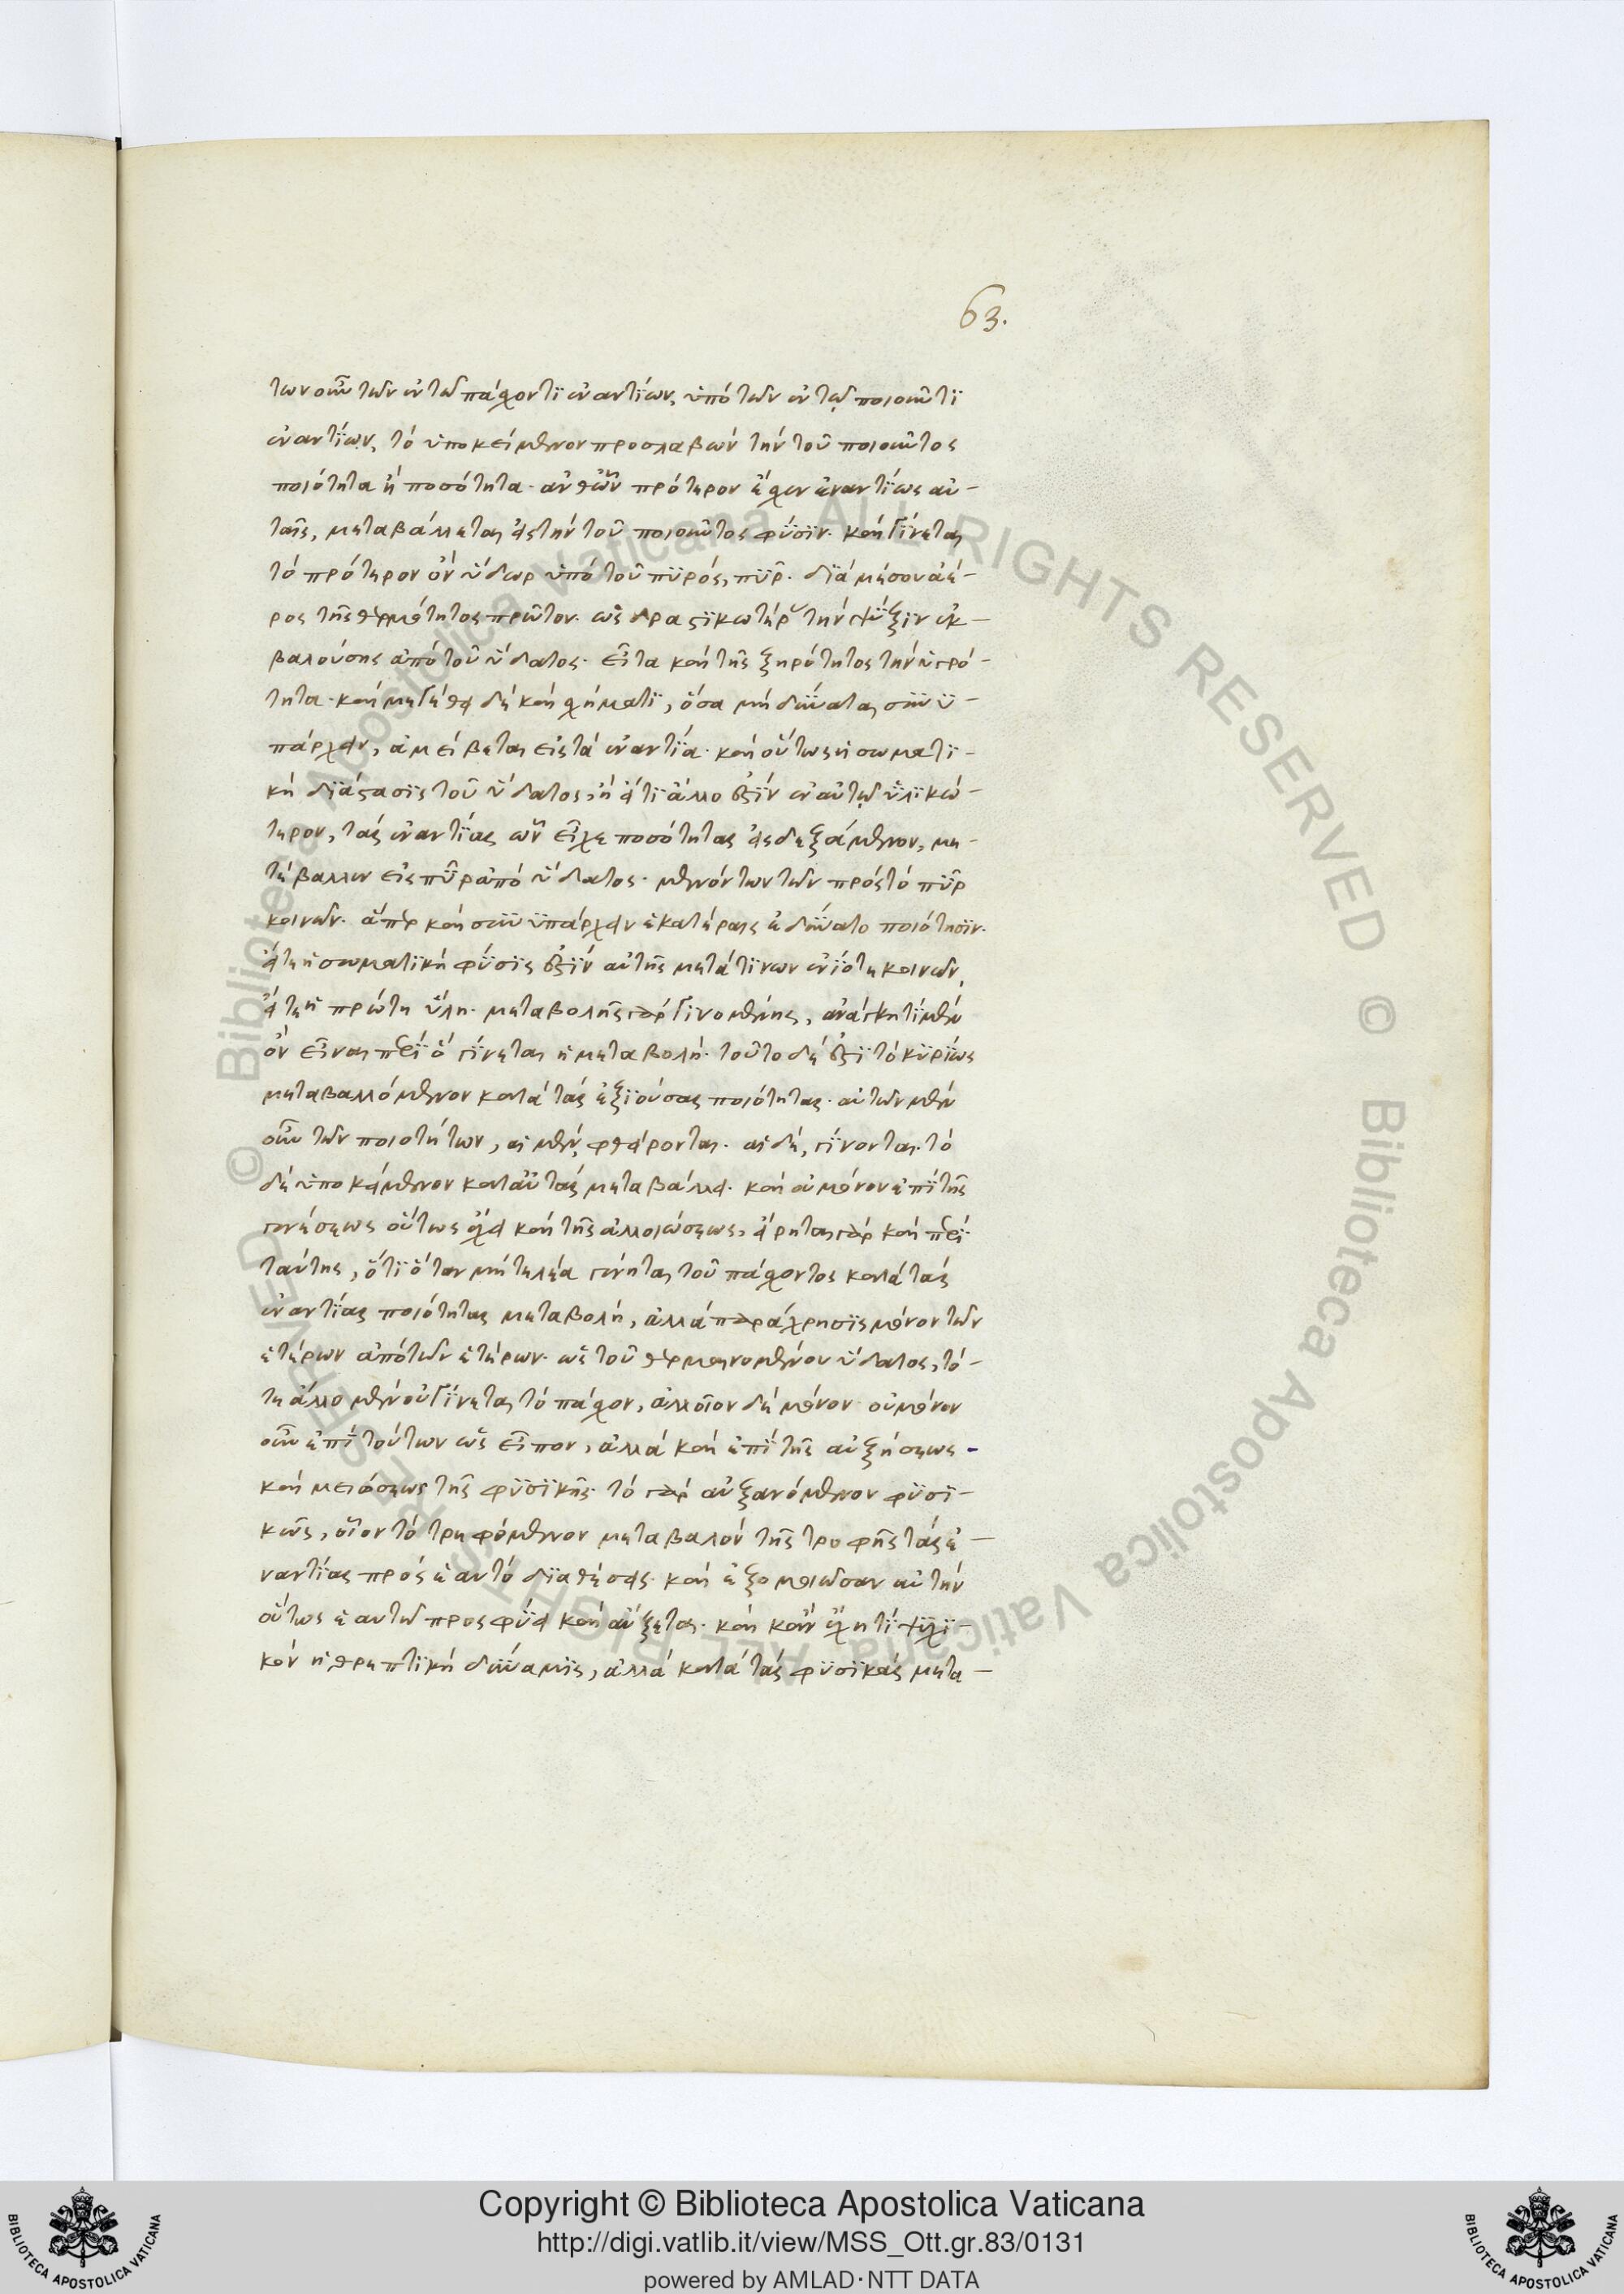 63.
των οὖν τῶν ἐν τῶ πάσχοντϊ ἐναντΐων, ὑπὸ τῶν ἐν τῷ ποιοῦντϊ
ἐναντΐων, τὸ ὑποκείμενον προσλαβὼν τὴν τοῦ ποιοῦντος
ποιότητα ἢ ποσότητα. ἀνθ ὧν πρότερον ἔσχεν ἐναντΐως αὐ-
ταῖς, μεταβάλλεται εἰς τὴν τοῦ ποιοῦντος φύσϊν. καὶ γΐνεται
τὸ πρότερον ὂν ὕδωρ ὑπὸ τοῦ πϋρός, πῦρ. δϊὰ μέσου ἀέ-
ρος τῆς θερμότητος πρῶτον. ὡς δραστϊκωτέρ τὴν ψύξϊν ἐκ-
βαλούσης ἀπὸ τοῦ ὕδατος. εἶτα καὶ τῆς ξηρότητος τὴν ὑγρό-
τητα. καὶ μεγέθει δὲ καὶ σχήματϊ, ὅσα μὴ δύναται σὺν ὑ-
πάρχειν, ἀμείβεται εἰς τὰ ἐναντΐα. καὶ οὕτως ἡ σωματϊ-
κὴ δϊάστασϊς τοῦ ὕδατος, ἢ εἴ τϊ ἄλλο ἐστὶν ἐν αὐτῷ ὑλϊκώ-
τερον, τὰς ἐναντΐας ὧν εἶχε ποσότητας εἰσδεξάμενον, με-
τέβαλλεν εἰς πῦρ ἀπὸ ὕδατος. μενόντων τῶν πρὸς τὸ πῦρ
κοινῶν. ἅπερ καὶ σὺν ὑπάρχειν ἑκατέραις ἐδύνατο ποιότησϊν.
εἴτε ἡ σωματϊκὴ φύσϊς ἐστὶν αὐτῆς μετά τϊνων ἐνΐοτε κοινῶν,
εἴτε ἡ πρώτη ὕλη. μεταβολῆς γὰρ γϊνομένης, ἀνάγκη τὶ μὲν
ὂν εἶναι περὶ ὃ γΐνεται ἡ μεταβολή. τοῦτο δέ ἐστϊ τὸ κϋρΐως
μεταβαλλόμενον κατὰ τὰς ἐξϊούσας ποιότητας. αὐτῶν μὲν
οὖν τῶν ποιοτήτων, αἱ μὲν, φθείρονται. αἱ δὲ, γΐνονται. τὸ
δὲ ὑποκείμενον κατ αὐτὰς μεταβάλλει. καὶ οὐ μόνον ἐπὶ τῆς
γενέσεως οὕτως ἔχει καὶ τῆς ἀλλοιώσεως, εἴρηται γὰρ καὶ περὶ
ταύτης, ὅτϊ ὅταν μὴ τελεία γένηται τοῦ πάσχοντος κατὰ τὰς
ἐναντΐας ποιότητας μεταβολή, ἀλλὰ παράχρησϊς μόνον τῶν
ἑτέρων ἀπὸ τῶν ἑτέρων. ὡς τοῦ θερμαινομένου ὕδατος, τό-
τε ἄλλο μὲν οὐ γΐνεται τὸ πάσχον, ἀλλοῖον δὲ μόνον. οὐ μόνον
οὖν ἐπὶ τούτων ὡς εἶπον, ἀλλὰ καὶ ἐπὶ τῆς αὐξήσεως
καὶ μειώσεως τῆς φϋσϊκῆς. τὸ γὰρ αὐξανόμενον φϋσϊ-
κῶς, οἷον τὸ τρεφόμενον μεταβαλὸν τῆς τροφῆς τὰς ἐ-
ναντΐας πρὸς ἑαυτὸ δϊαθέσεις. καὶ ἐξομοιῶσαν αὐτὴν
οὕτως ἑαυτῶ προσφύει καὶ αὔξεται. καὶ κἂν ἔχη τὶ ψϋχϊ-
κὸν ἡ θρεπτϊκὴ δύναμϊς, ἀλλὰ κατὰ τὰς φϋσϊκὰς μετα-
© Biblioteca Apostolica Vaticana ALL RIGHTS RESERVED
Copyright © Biblioteca Apostolica Vaticana
http://digi.vatlib.it/view/MSS_Ott.gr.83/0131
powered by AMLAD·NTT DATA
BIBLIOTECA APOSTOLICA VATICANA
BIBLIOTECA APOSTOLICA VATICANA